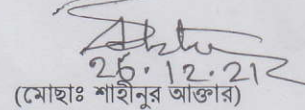 26.12.212
(মোছাঃ শাহীনুর আক্তার)